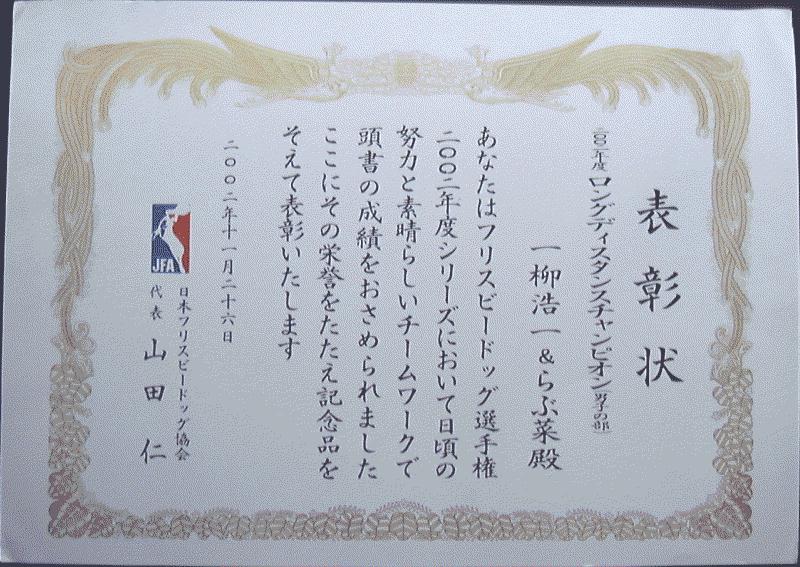 表彰状
二〇〇二年度 ロングディスタンスチャンピオン(男子の部)
一柳浩一＆らぶ菜殿
あなたはフリスビードッグ選手権
二〇〇二年度シリーズにおいて日頃の
努力と素晴らしいチームワークで
頭書の成績をおさめられました
ここにその栄誉をたたえ記念品を
そえて表彰いたします
二〇〇二年十一月二十六日
JFA
日本フリスビードッグ協会
代表 山田仁